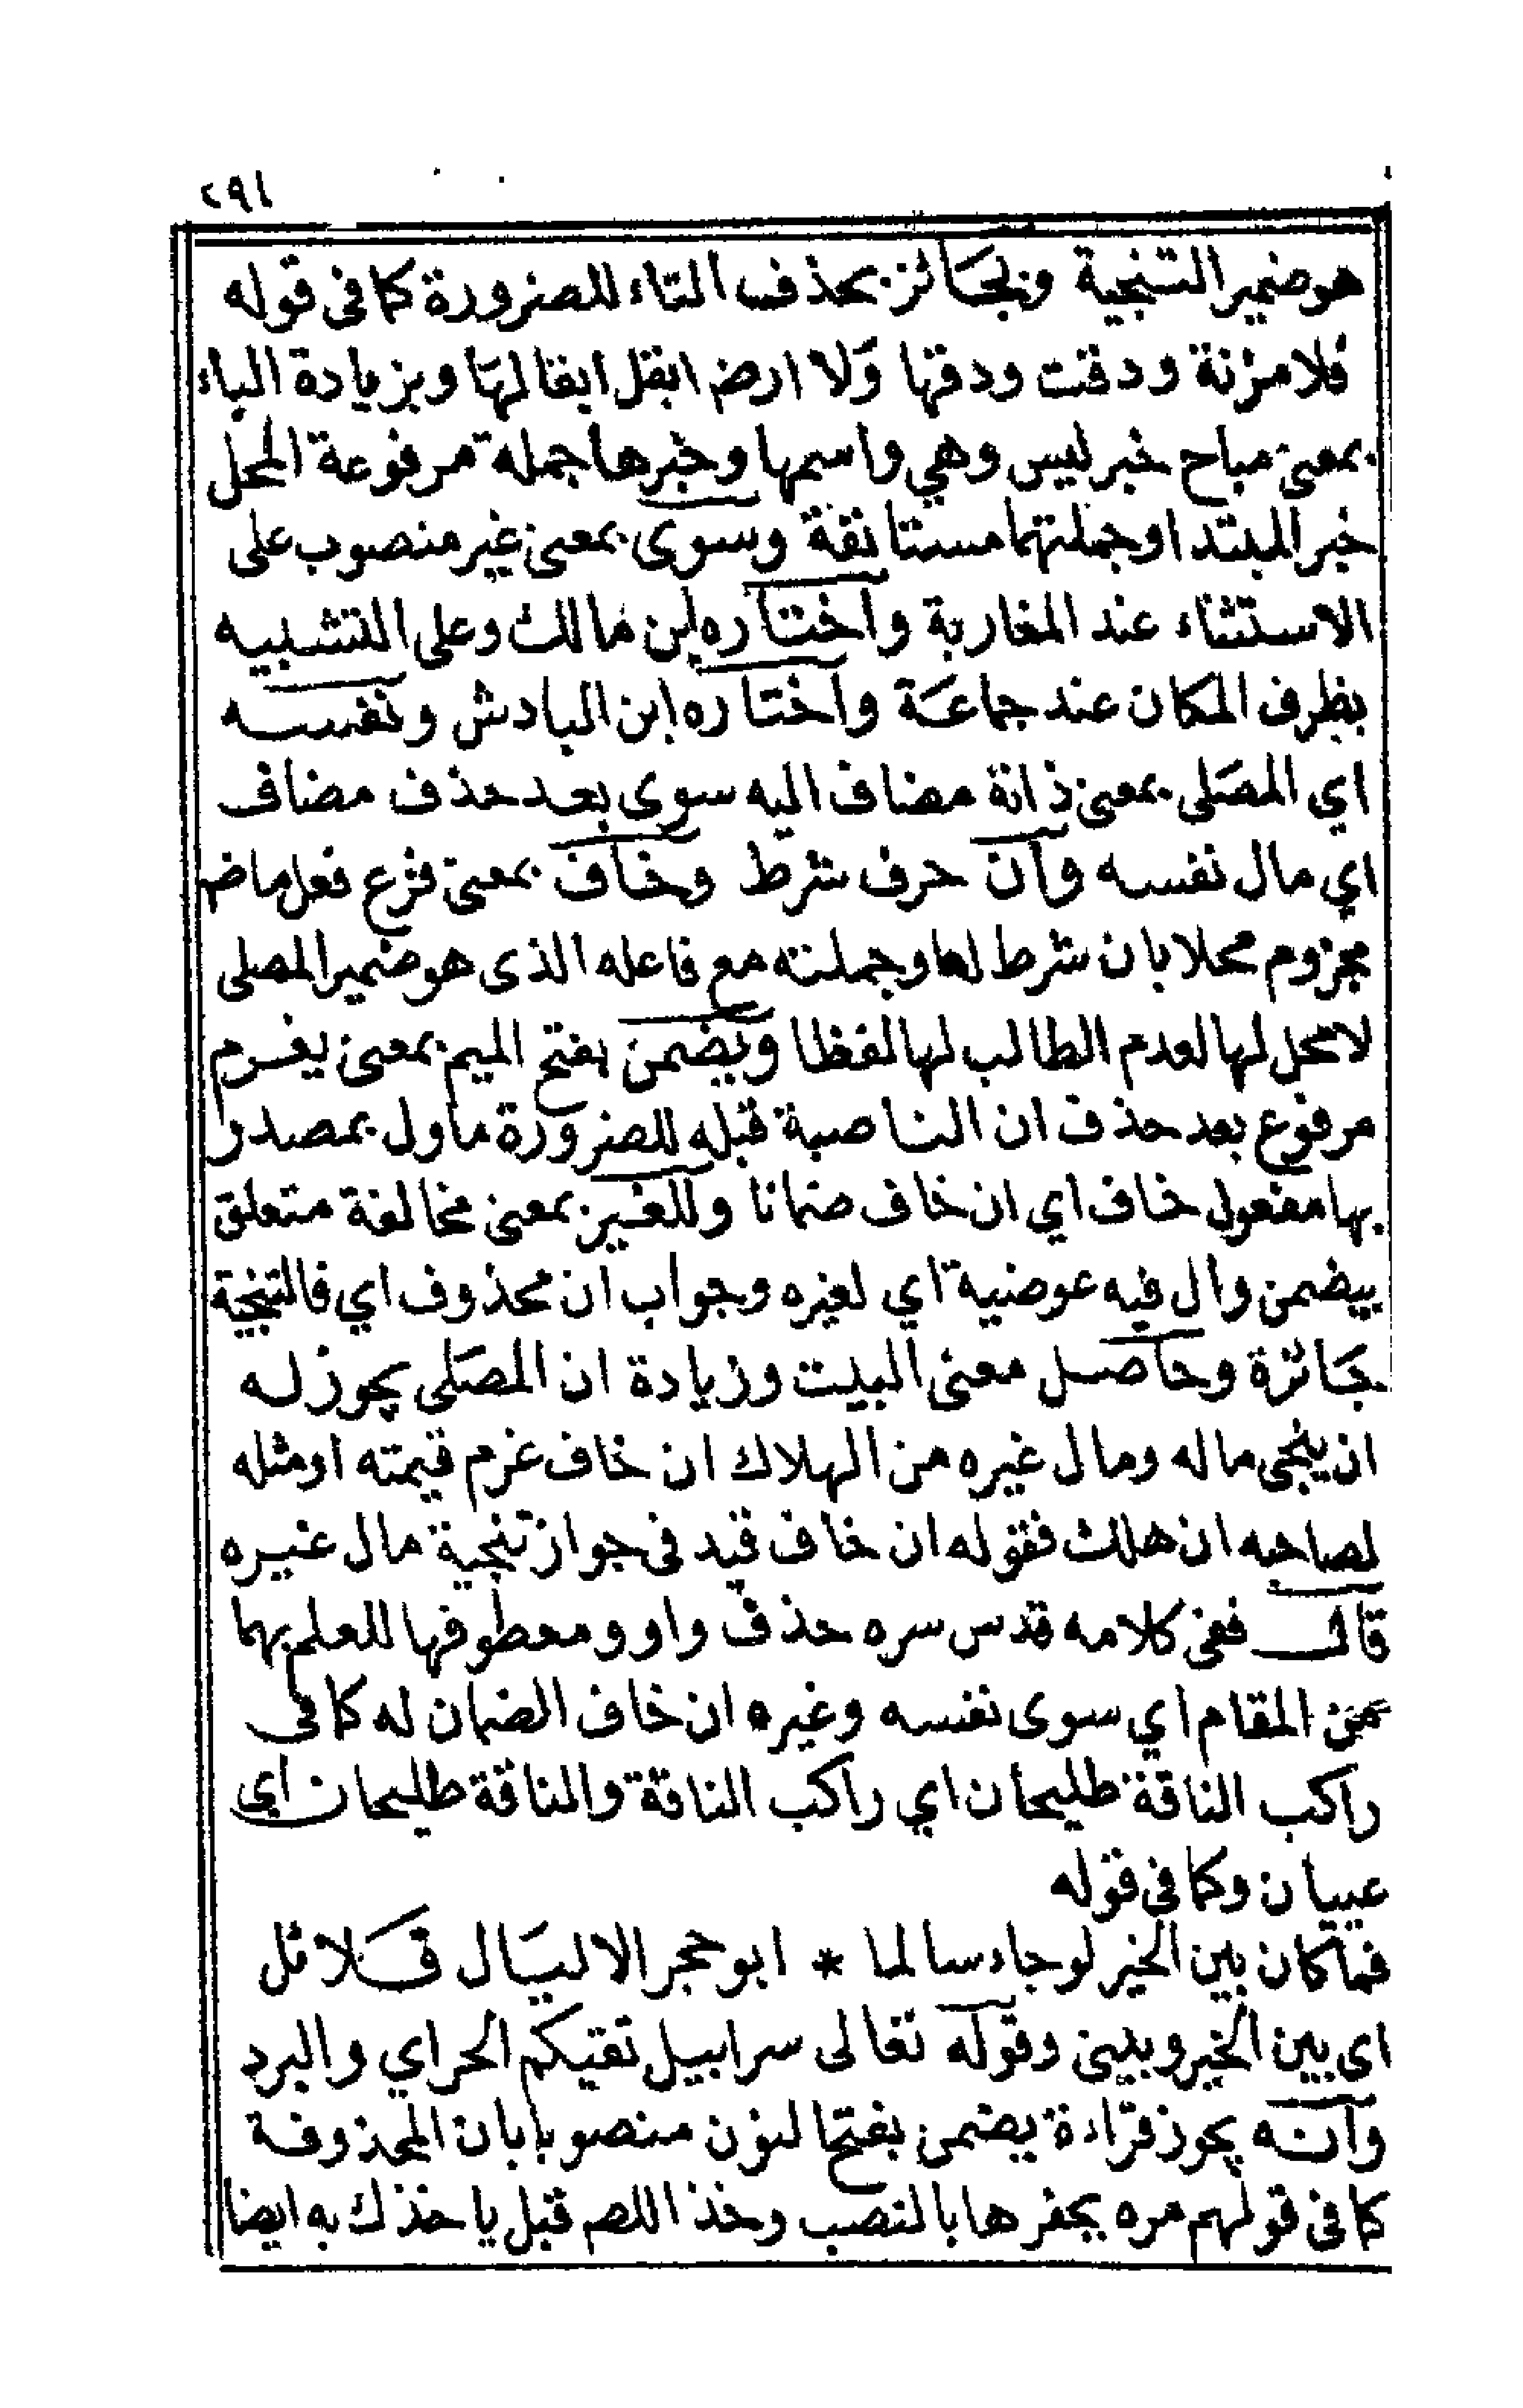 ٢٩١
هو ضمير التنجية وبجائز بحذف التاء للضرورة كما في قوله
فلا مزنة ودقت ودقها ولا ارض ابقل ابقالها وبزيادة الباء
بمعنى مباح خبر ليس وهي واسمها وخبرها جملة مرفوعة المحل
خبر المبتدا وجملتهما مستانفة وسوى بمعنى غير منصوب على
الاستثناء عند المغاربة واختاره ابن مالك وعلى التشبيه
بظرف المكان عند جماعة واختاره ابن البادش ونفسه
اي المصلى بمعنى ذاته مضاف اليه سوى بعد حذف مضاف
اي مال نفسه وان حرف شرط وخاف بمعنى فزع فعل ماض
مجزوم محلا بان شرط لها وجملته مع فاعله الذى هو ضمير المصلى
لا محل لها لعدم الطالب لها لفظا ويضمن بفتح الميم بمعنى يغرم
مرفوع بعد حذف ان الناصبة قبله للضرورة ماول بمصدر
بها مفعول خاف اي ان خاف ضمانا وللغير بمعنى مخالفة متعلق
بيضمن وال فيه عوضية اي لغيره وجواب ان محذوف اي فالتنجية
جائزة وحاصل معنى البيت وزيادة ان المصلى يجوز له
ان ينجى ماله ومال غيره من الهلاك ان خاف غرم قيمته او مثله
لصاحبه ان هلك فقوله ان خاف قيد في جواز تنجية مال غيره
قال ففى كلامه قدس سره حذف واو ومعطوفها للعلم بهما
من المقام اي سوى نفسه وغيره ان خاف الضمان له كما فى
راكب الناقة طليحان اي راكب الناقة والناقة طليحان اي
عييان وكما في قوله
فما كان بين الخير لو جاء سالما * ابو حجر الا ليال قلائل
اي بين الخير وبينى وقوله تعالى سرابيل تقيكم الحر اي والبرد
وانه يجوز قراءة يضمن بفتح النون منصوبا بان المحذوفة
كما في قولهم مره يحفرها بالنصب وخذ اللص قبل ياخذك به ايضا